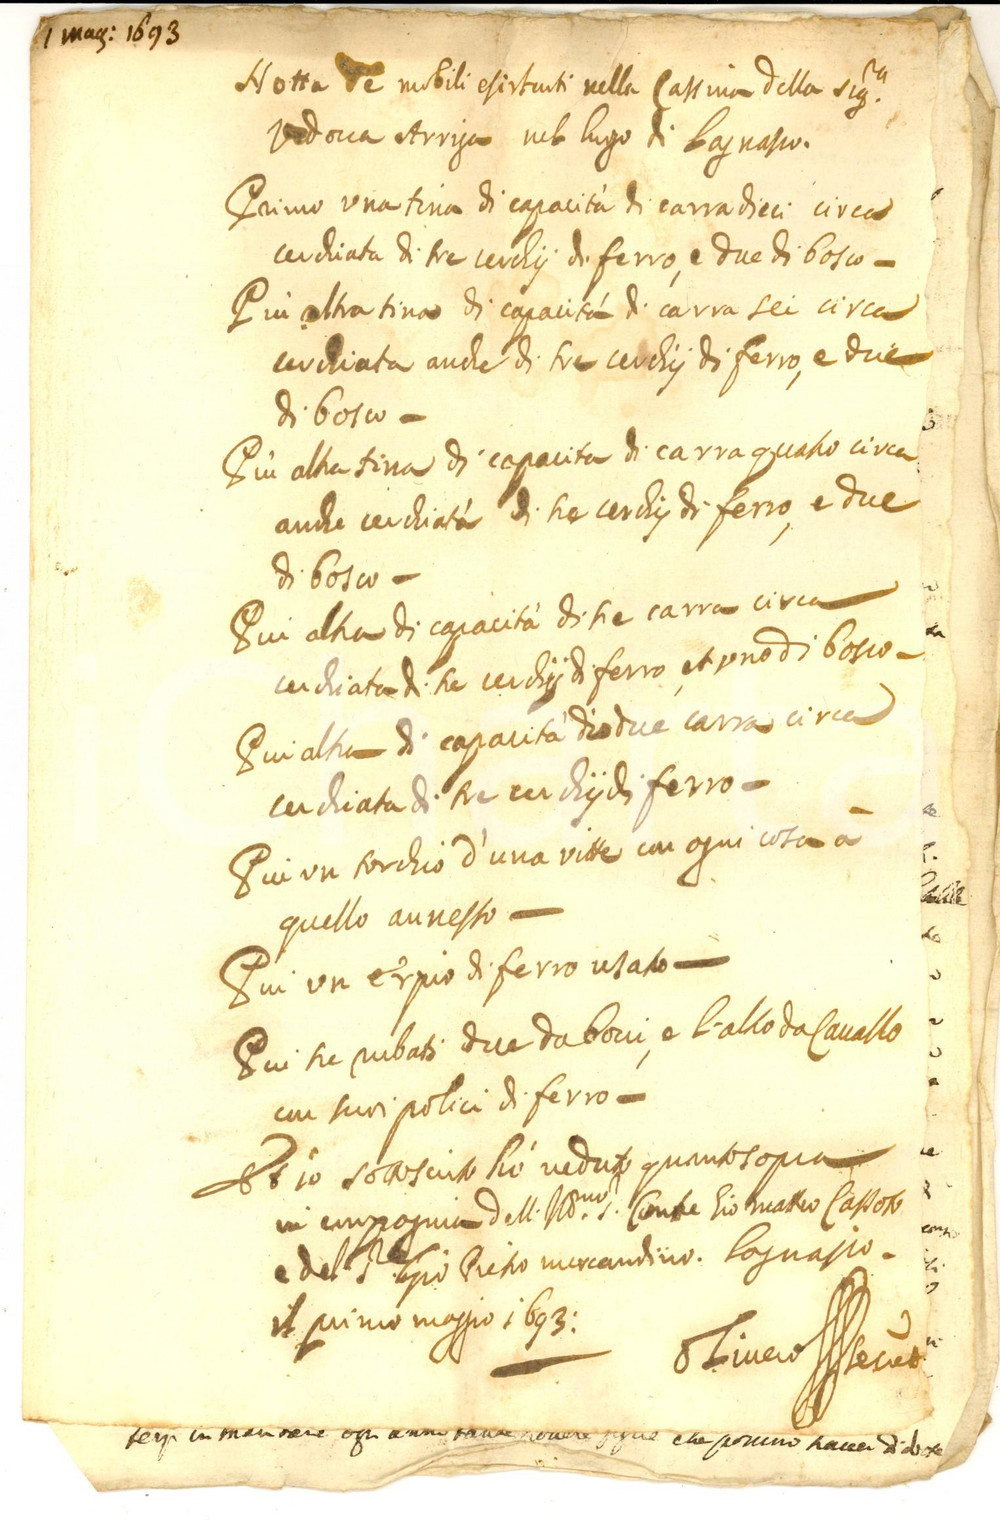 1 mag: 1693
Notta de mobili esistenti nella Cassina della sig.ra
vedoua Arriga nel luogo di Lagnasco.
Primo vna tina di capacità di carra dieci circa
cerchiata di tre cerchij di ferro, e due di bosco -
Più altra tina di capacità di carra sei circa
cerchiata anche di tre cerchij di ferro, e due
di bosco -
Più altra tina di capacita di carra quatro circa
anche cerchiata di tre cerchij di ferro, e due
di bosco -
Più altra di capacità di tre carra circa
cerchiata di tre cerchij di ferro, et vno di bosco -
Più altra di capacità di due carra circa
cerchiata di tre cerchij di ferro -
Più vn torchio d'una vitte con ogni cosa à
quello annesso -
Più vn erpio di ferro usato -
Più tre rubati due da boui, e l'altro da Cauallo
con suoi polici di ferro -
Et io sottoscritto hò veduto quanto sopra
in compagnia dell' Ill.mo s.r Conte Gio matteo
e del s.r Gio Pietro mercandino. Lagnasco -
il primo maggio 1693:
Oliuero Secret.
in mandare ogni anno che possino